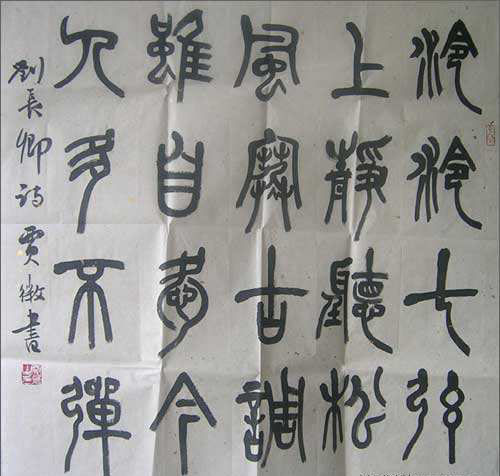 泠泠七弦
上靜聽松
風寒古調
雖自愛今
人多不彈
劉長卿詩 賈 書